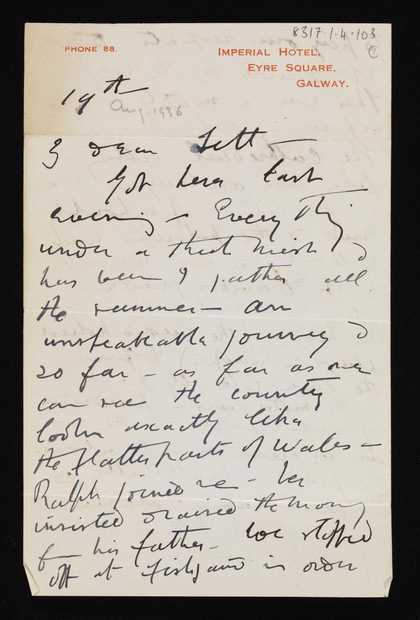 8317.1.4.103
PHONE 88.
IMPERIAL HOTEL,
EYRE SQUARE,
GALWAY.
19th
Aug 1936
My dear
Got here last
evening – Every thing
under a thick mist &
has been I gather all
the summer – an
unspeakable journey &
so far – as far as one
can see the country
looks exactly like
the flatter parts of Wales –
Ralph joined me – he
insisted & raised the money
from his father – We stopped
off at Fishguard in order